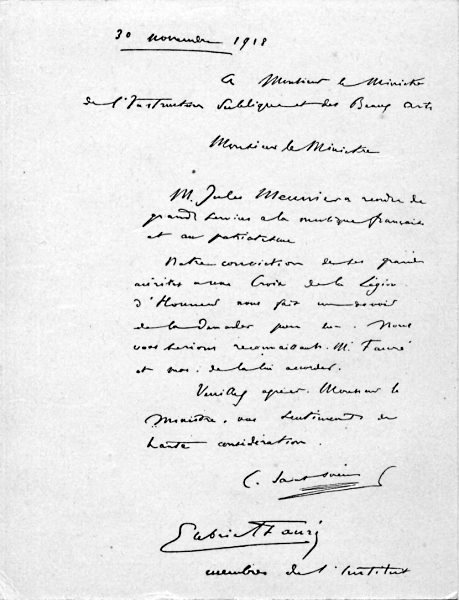 30 novembre 1918
A Monsieur le Ministre
de l'Instruction Publique et des Beaux Arts
Monsieur le Ministre
M. Jules Meunier a rendu de
grands services a la musique française
et au patriotisme
Notre conviction de ses grands
mérites a une Croix de la Légion
d'Honneur nous fait un devoir
de la demander pour lui. Nous
vous serions reconnaissants M. Fauré
et moi de la lui accorder.
Veuillez agréer Monsieur le
Ministre, nos sentiments de
haute considération.
C. Saint-Saëns
Gabriel Fauré
membres de l'Institut